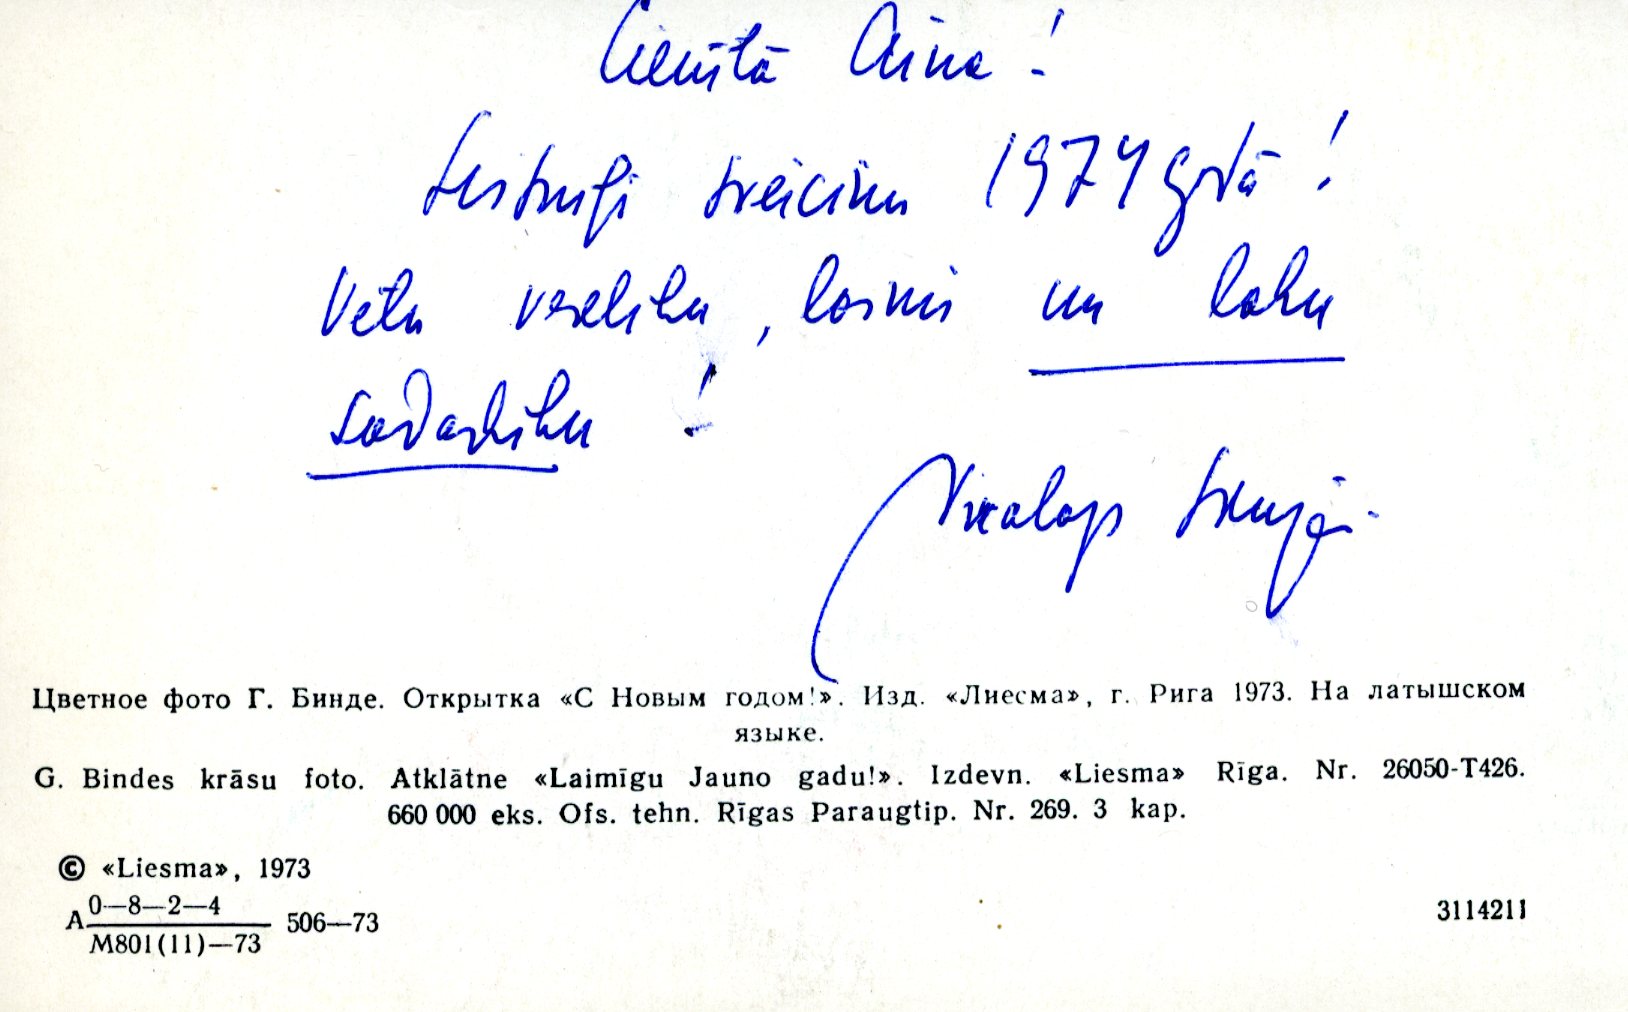 Cienītā Aina!
Sirsnīgi sveicinu 1974 gadā!
Vēlu veselību, laimi un labu
sadarbību!
Цветное фото Г. Бинде. Открытка «С Новым годом!». Изд. «Лиесма», г. Рига 1973. На латышском
языке.
G. Bindes krāsu foto. Atklātne «Laimīgu Jauno gadu!». Izdevn. «Liesma» Rīga. Nr. 26050-T426.
660 000 eks. Ofs. tehn. Rīgas Paraugtip. Nr. 269. 3 kap.
© «Liesma», 1973
A 0—8—2—4
M801(11)—73 506—73
3114211